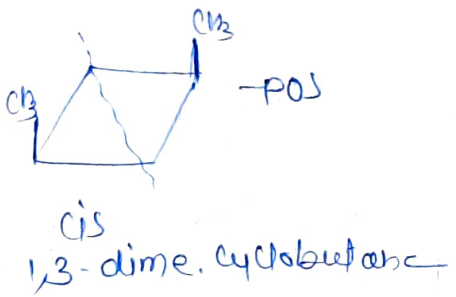 CH3
CH3
-POS
cis
1,3-dime. cyclobutane